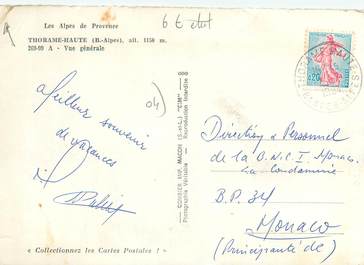 Les Alpes de Provence
THORAME-HAUTE (B.-Alpes), alt. 1150 m.
203-99 A - Vue générale
6 € 
04
0,20
THORAME-HAUTE
Meilleur souvenir
de vacances
COMBIER IMP. MACON (S.-et-L.) "CIM"
Photographie Véritable - Reproduction Interdite
Direction & Personnel
de la B.N.C.I. Monaco
La Condamine
B.P. 34
Monaco
(Principauté de)
« Collectionnez les Cartes Postales ! »